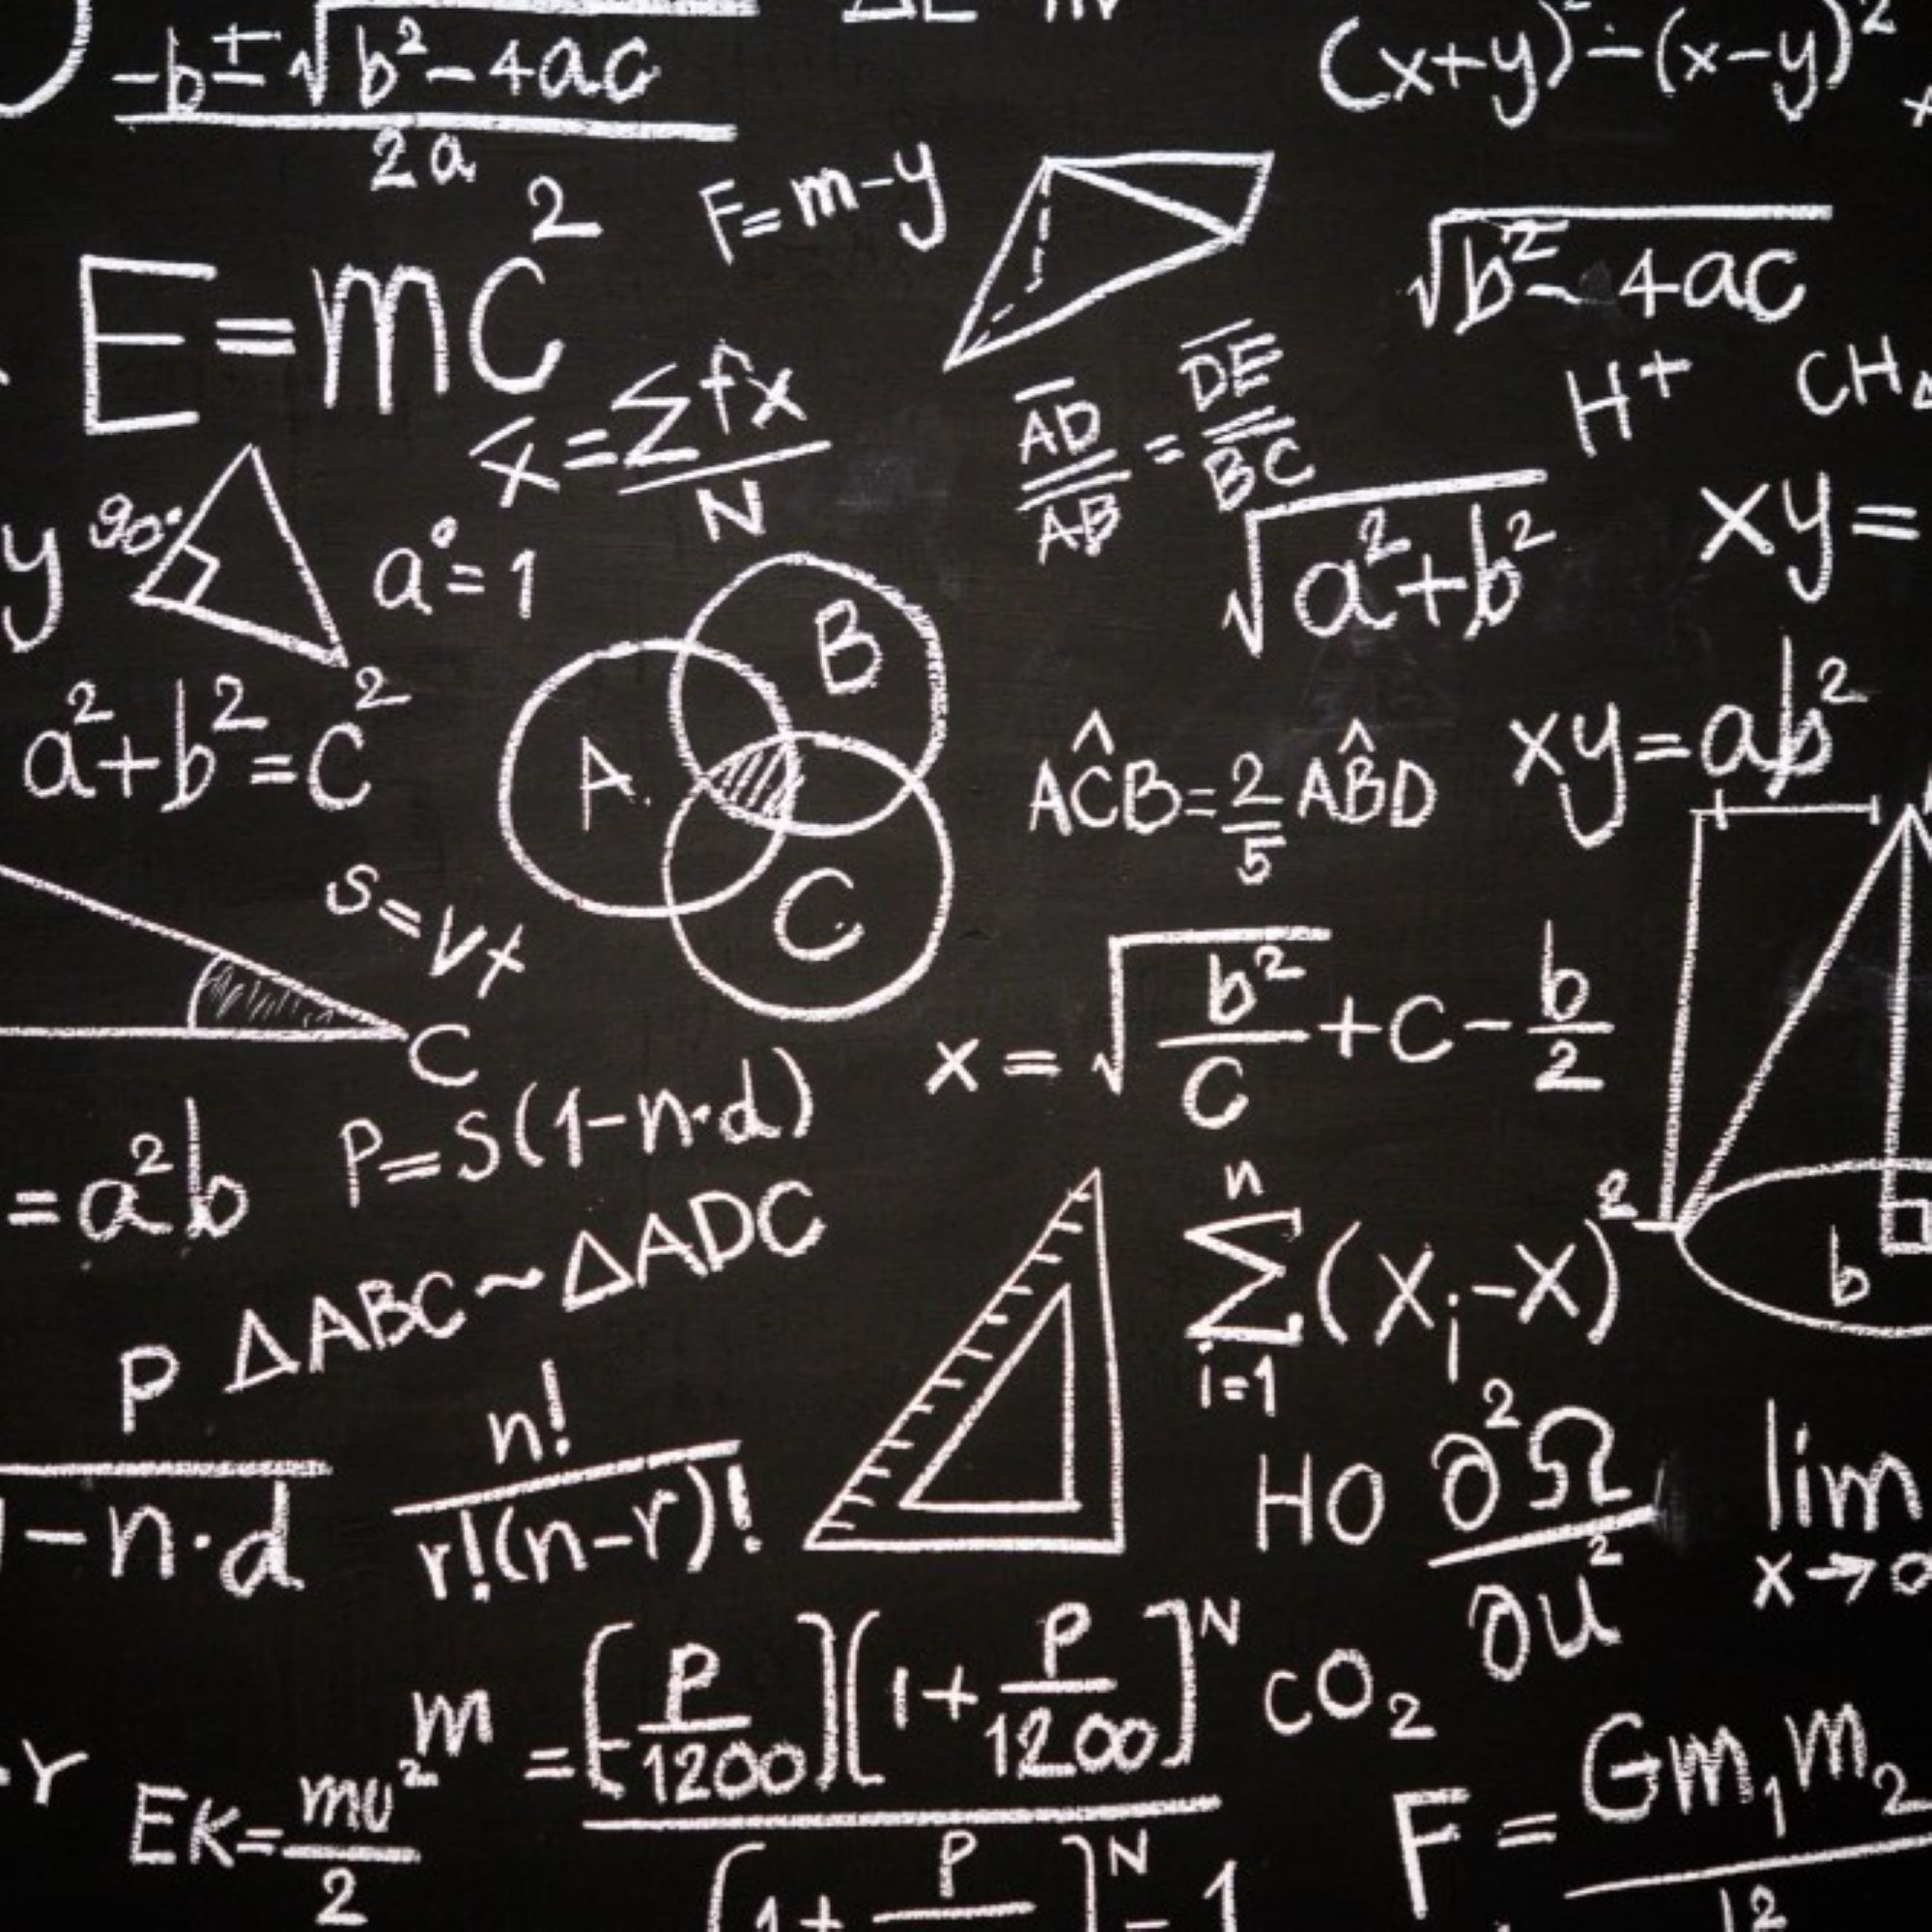 -b±√b²-4ac
2a
(x+y)²-(x-y)²
F=m-y
E=mc²
√b²-4ac
x̄=∑fx
N
AD/AB = DE/BC
H+
CH₄
90°
y
a°=1
√a²+b²
xy=
B
A
C
a²+b²=c²
AĈB=2/5 AB̂D
xy=ab²
s=vt
C
x=√b²/C+C-b/2
=a²b
P=S(1-n·d)
n
∑(Xᵢ-X)²
i=1
b
ΔABC~ΔADC
P
1-n·d
n!
r!(n-r)!
HO
∂²Ω
∂u²
lim
x→0
m=[P/1200](1+P/1200]ᴺ
[1+P]ᴺ-1
CO₂
-Y
EK=mv²
2
F=Gm₁m₂